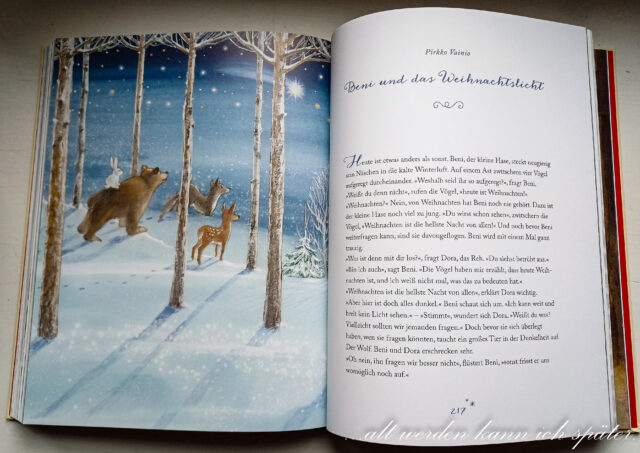 Pirkko Vainio
Beni und das Weihnachtslicht
Heute ist etwas anders als sonst. Beni, der kleine Hase, steckt neugierig
sein Näschen in die kalte Winterluft. Auf einem Ast zwitschern vier Vögel
aufgeregt durcheinander. »Weshalb seid ihr so aufgeregt?«, fragt Beni.
»Weißt du denn nicht«, rufen die Vögel, »heute ist Weihnachten!«
»Weihnachten?« Nein, von Weihnachten hat Beni noch nie gehört. Dazu ist
der kleine Hase noch viel zu jung. »Du wirst schon sehen«, zwitschern die
Vögel, »Weihnachten ist die hellste Nacht von allen!« Und noch bevor Beni
weiterfragen kann, sind sie davongeflogen. Beni wird mit einem Mal ganz
traurig.
»Was ist denn mit dir los?«, fragt Dora, das Reh. »Du siehst betrübt aus.«
»Bin ich auch«, sagt Beni. »Die Vögel haben mir erzählt, dass heute Weih-
nachten ist, und ich weiß nicht mal, was das zu bedeuten hat.«
»Weihnachten ist die hellste Nacht von allen«, erklärt Dora wichtig.
»Aber hier ist doch alles dunkel.« Beni schaut sich um. »Ich kann weit und
breit kein Licht sehen.« – »Stimmt«, wundert sich Dora. »Weißt du was?
Vielleicht sollten wir jemanden fragen.« Doch bevor sie sich überlegt
haben, wen sie fragen könnten, taucht ein großes Tier in der Dunkelheit auf.
Der Wolf. Beni und Dora erschrecken sehr.
»Oh nein, ihn fragen wir besser nicht«, flüstert Beni, »sonst frisst er uns
womöglich noch auf.«
217
alt werden kann ich später